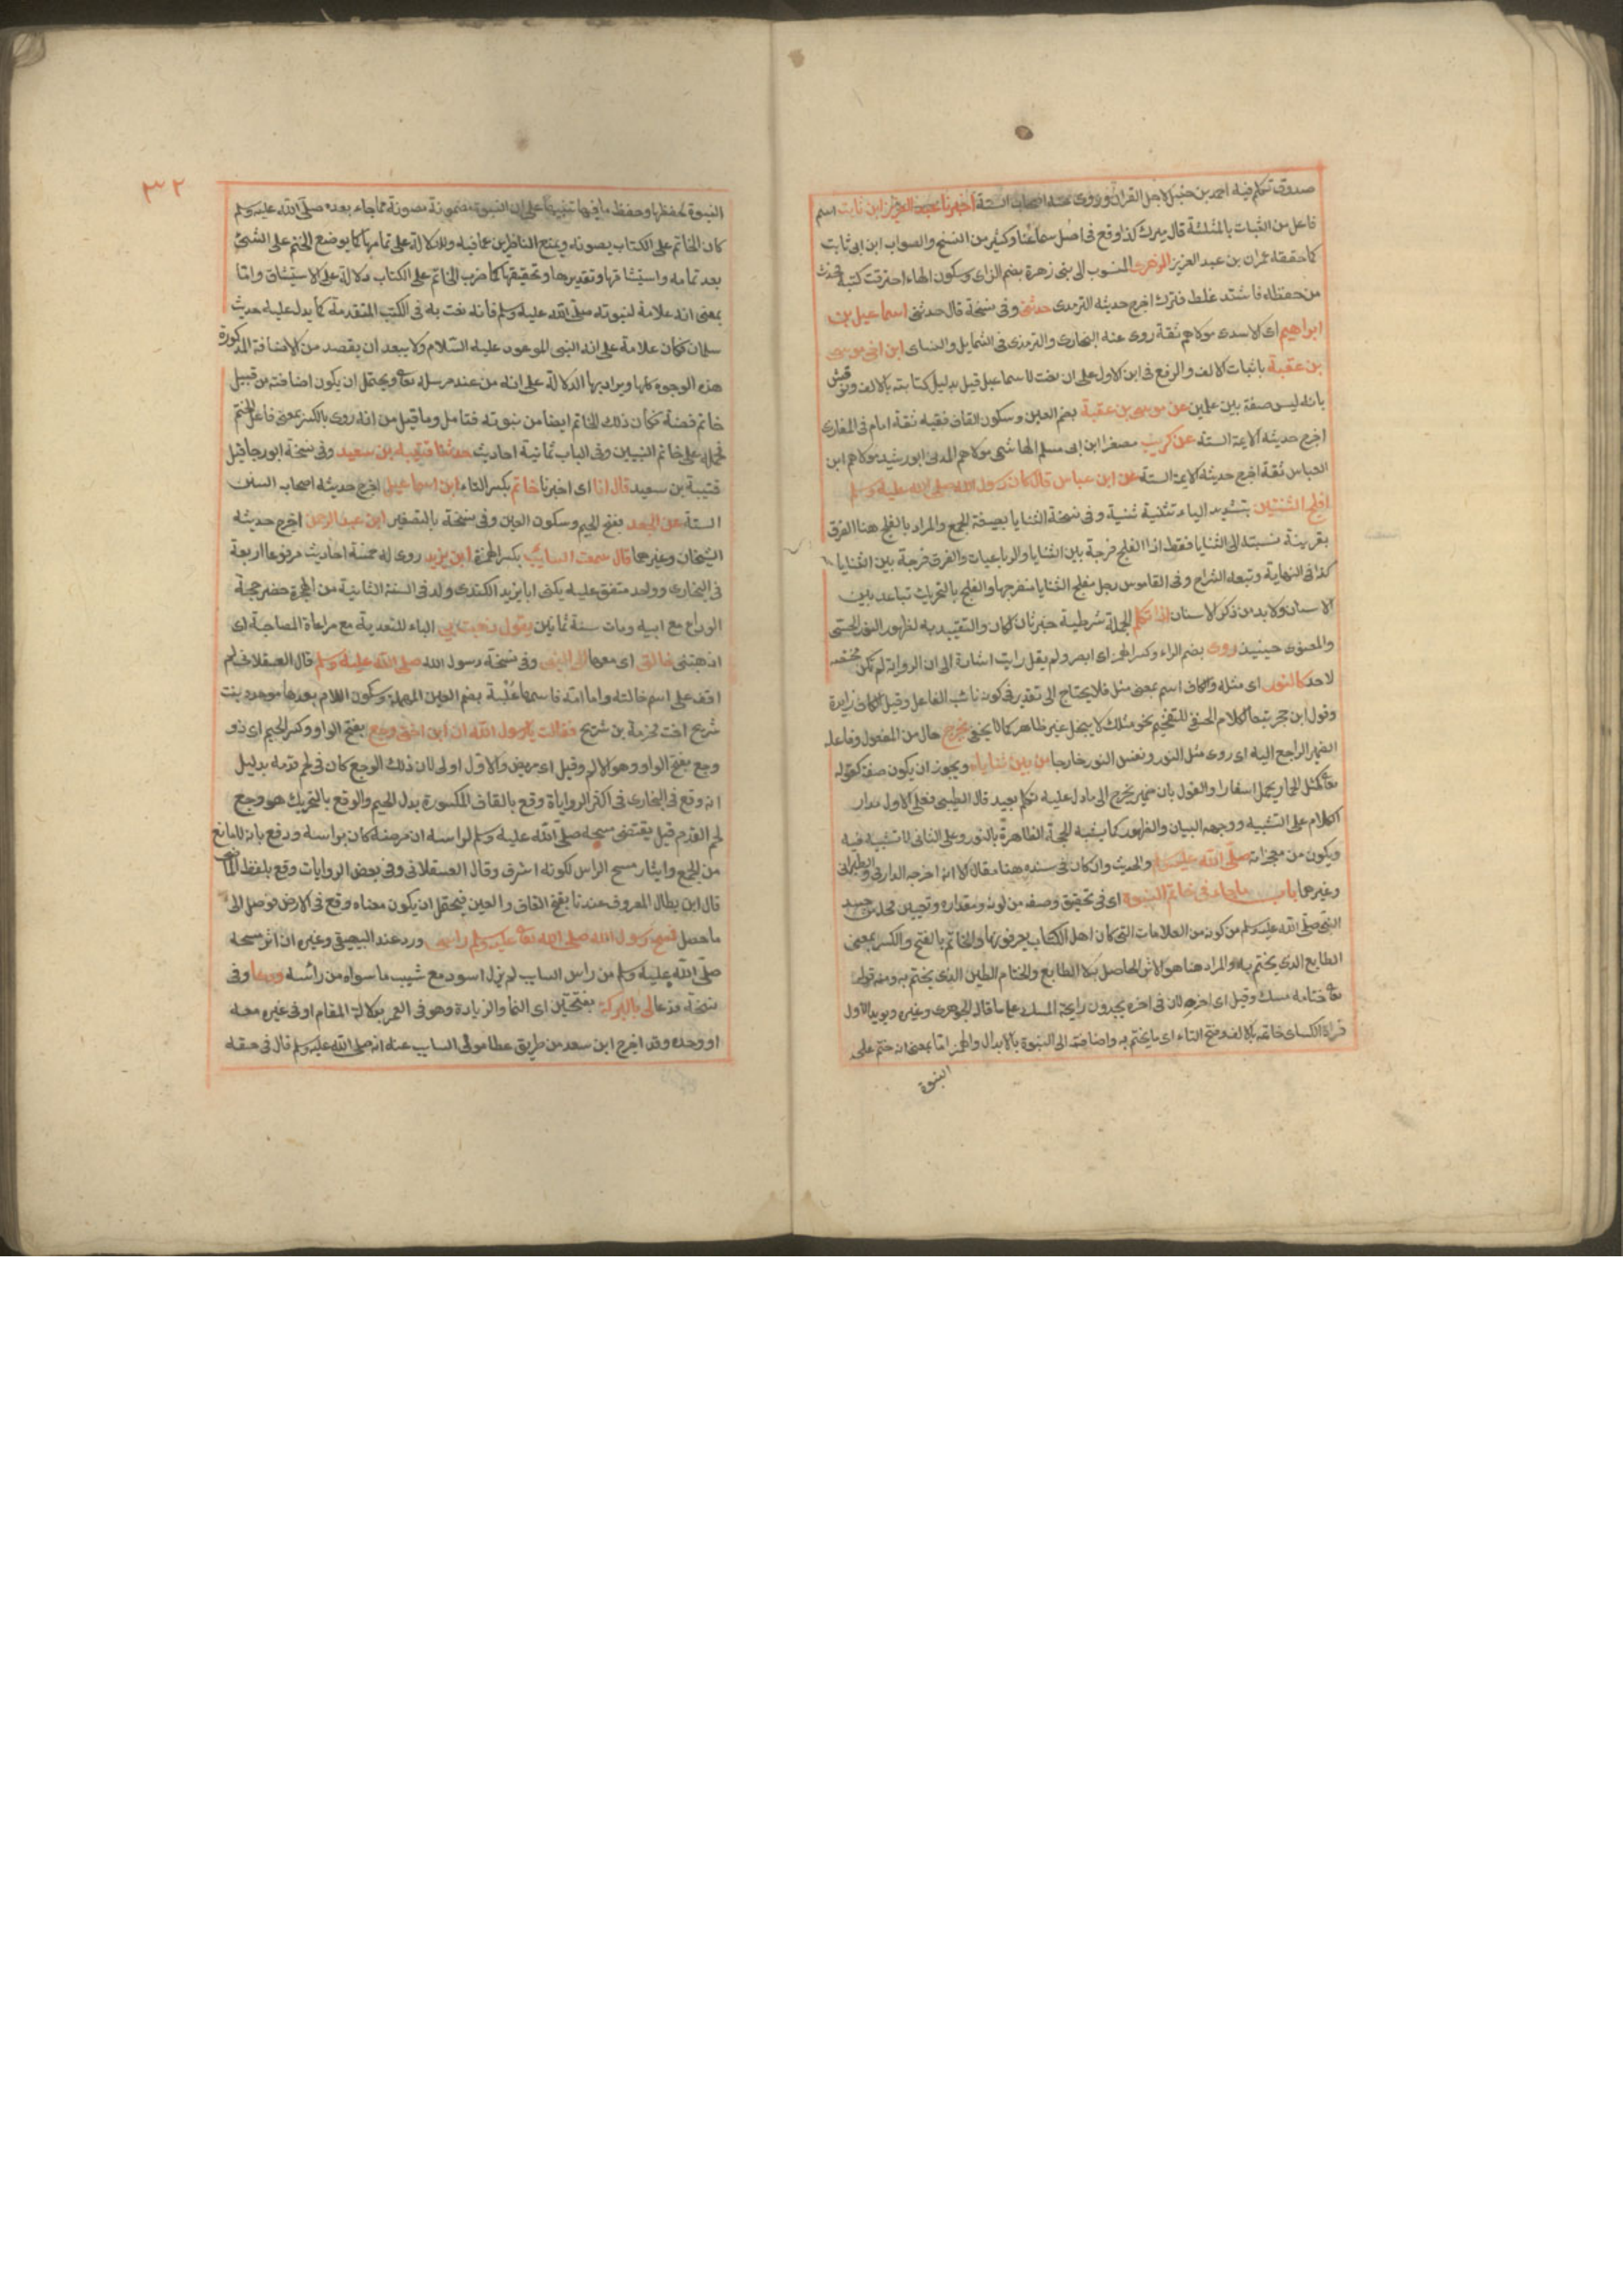 صدوق تكلم فيه احمد بن حنبل لاجل القران وروى عنه اصحاب الستة اخبرنا عبد العزيز ابن ثابت اسم
فاعل من الثبات بالمثلثة قال ميرك كذا وقع في اصل سماعنا وكثير من النسخ والصواب ابن ابي ثابت
كما حققه عمران بن عبد العزيز الزهري المنسوب الى بنى زهرة بضم الزاى وسكون الهاء احترقت كتبه فحدث
من حفظه فاشتد غلطه فترك اخرج حديثه الترمذى حدثنى وفى نسخة قال حدثنى اسماعيل بن
ابراهيم اى الاسدى مولاهم ثقة روى عنه البخارى والترمذى فى الشمايل والنساى ابن اخى موسى
بن عقبة باثبات الالف والرفع فى ابن الاول على ان نعت لاسماعيل قيل بدليل كتابته بالالف ونوقش
بانه ليس صفة بين علمين عن موسى بن عقبة بضم العين وسكون القاف فقيه ثقة امام فى المغازى
اخرج حديثه الايمة الستة عن كريب مصغرا ابن ابى مسلم الهاشمى مولاهم المدنى ابو رشيد مولاهم ابن
العباس ثقة اخرج حديثه الايمة الستة عن ابن عباس قال كان رسول الله صلى الله عليه وسلم
افلج الثنتين بتشديد الياء تثنية ثنية وفى نسخة الثنايا بصيغة الجمع والمراد بالفلج هنا الفرق
بقرينة نسبته الى الثنايا فقط اذ الفلج فرجة بين الثنايا والرباعيات والفرق فرجة بين الثنايا
كذا فى النهاية وتبعه الشراح وفى القاموس رجل مفلج الثنايا منفرجها والفلج بالتحريك تباعد بين
الاسنان ولا بد من ذكر الاسنان اذا تكلم الجملة شرطية خبر ثان لكان والتقييد به لظهور النور الحسى
والمعنوى حينيذ روى بضم الراء وكسر الهمز اى ابصر ولم يقل رايت اشارة الى ان الروية لم تكن مختصة
لاحد كالنور اى مثله والكاف اسم بمعنى مثل فلا يحتاج الى تقدير فى كونه نائب الفاعل وقيل الكاف زايدة
وقول ابن حجر تبعا لكلام الحنفى للتفخيم نحو مثلك لا يبخل غير ظاهر كما لا يخفى يخرج حال من المفعول وفاعله
الضمير الراجع اليه اى روى مثل النور ونفس النور خارجا من بين ثناياه ويجوز ان يكون صفة كقوله
تعالى كمثل الحمار يحمل اسفارا والقول بان ضمير يخرج الى ما دل عليه تكلم بعيد قال الطيبى فعلى الاول مدار
الكلام على التشبيه ووجهه البيان والظهور كما يشبه الحجة الظاهرة بالنور وعلى الثانى لا تشبيه فيه
ويكون من معجزاته صلى الله عليه وسلم والحديث وان كان فى سنده هنا مقال الا انه اخرجه الدارمى والطبرانى
وغيرهما باب ما جاء فى خاتم النبوة اى فى تحقيق وصفه من لونه ومقداره وتعيين محله من جسد
النبى صلى الله عليه وسلم من كونه من العلامات التى كان اهل الكتاب يعرفونه بها والخاتم بالفتح والكسر بمعنى
الطابع الذى يختم به والمراد هنا هو الاثر الحاصل به لا الطابع والختام الطين الذى يختم به ومنه قوله
تعالى ختامه مسك وقيل اى اخره لان فى اخره يجدون رايحة المسك على ما قاله الجوهرى وغيره ويويد الاول
قراة الكساى خاتمه بالالف وفتح التاء اى ما يختم به واضافته الى النبوة بالابدال والهمز اما بمعنى انه ختم على
النبوة
٣٢
النبوة لحفظها وحفظ ما فيها تنبيها على ان النبوة مضمونة مصونة عما جاء بعده صلى الله عليه وسلم
كان الخاتم على الكتاب يصونه ويمنع الناظرين عما فيه وللدلالة على تمامها كما يوضع الختم على الشئ
بعد تمامه واستيثاقها وتقديرها وتحقيقها كما ضرب الخاتم على الكتاب دلالة على الاستيثاق واما
بمعنى انه علامة لنبوته صلى الله عليه وسلم فانه نعت به فى الكتب المتقدمة كما يدل عليه حديث
سلمان فكان علامة على انه النبى الموعود عليه السلام ولا يبعد ان يقصد من الاضافة المذكورة
هذه الوجوه كلها ويراد بها الدلالة على انه من عند مرسله تعالى ويحتمل ان يكون اضافته من قبيل
خاتم فضة فكان ذلك الخاتم ايضا من نبوته فتامل وما قيل من انه روى بالكسر بمعنى فاعل الختم
فحمله على خاتم النبيين وفى الباب ثمانية احاديث حدثنا قتيبة بن سعيد وفى نسخة ابو رجا قيل
قتيبة بن سعيد قال انا اى اخبرنا خاتم بكسر التاء ابن اسماعيل اخرج حديثه اصحاب السنن
الستة عن الجعد بفتح الجيم وسكون العين وفى نسخة بالتصغير ابن عبد الرحمن اخرج حديثه
الشيخان وغيرهما قال سمعت السايب بكسر الهمزة ابن يزيد روى له خمسة احاديث مرفوعا اربعة
فى البخارى وواحد متفق عليه يكنى ابا يزيد الكندى ولد فى السنة الثانية من الهجرة حضر حجة
الوداع مع ابيه ومات سنة ثمانين يقول ذهبت بى الباء للتعدية مع مراعاة المصاحبة اى
اذهبتنى خالتى اى معها الى النبى وفى نسخة رسول الله صلى الله عليه وسلم قال العسقلانى لم
اقف على اسم خالته واما امه فاسمها علبة بضم العين المهملة وسكون اللام بعدها موحدة بنت
شريح اخت مخرمة بن شريح فقالت يا رسول الله ان ابن اختى وجع بفتح الواو وكسر الجيم اى ذو
وجع بفتح الواو وهو الالم وقيل اى مريض والاول اولى لان ذلك الوجع كان فى لحم قدمه بدليل
انه وقع فى البخارى فى اكثر الرواياة وقع بالقاف المكسورة بدل الجيم والوقع بالتحريك هو وجع
لحم القدم قيل يقتضى مسحه صلى الله عليه وسلم لراسه ان مرضه كان براسه ودفع بانه لا مانع
من الجمع وايثار مسح الراس لكونه اشرف وقال العسقلانى وفى بعض الروايات وقع بلفظ الماضى
قال ابن بطال المعروف عندنا بفتح القاف والعين فيحتمل ان يكون معناه وقع فى الارض فوصل الى
ما حصل فمسح رسول الله صلى الله تعالى عليه وسلم راسى ورد عند البيهقى وغيره ان اثر مسحه
صلى الله عليه وسلم من راس السايب لم يزل اسود مع شيب ما سواه من رائسه ودعا وفى
نسخة فدعا لى بالبركة بفتحتين اى النما والزيادة وهو فى العمر بدلالة المقام او فى غيره معه
او وحده وقد اخرج ابن سعد من طريق عطا مولى السايب عنه انه صلى الله عليه وسلم قال فى حقه